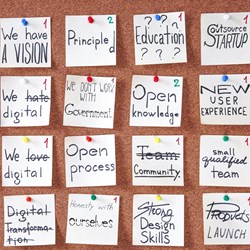 We have
A VISION
1
Principled
2
? ? ?
Education
? ? ?
Outsource
STARTUP
We hate
digital
1
WE DON'T WORK
WITH
Government
1
Open
knowledge
2
NEW
USER
EXPERIENCE
We love
digital
1
Open
process
Team
Community.
1
small
qualified
team
1
Digital
Transforma-
tion
Honesty with
ourselves
1
Strong
Design
Skills
Product
LAUNCH